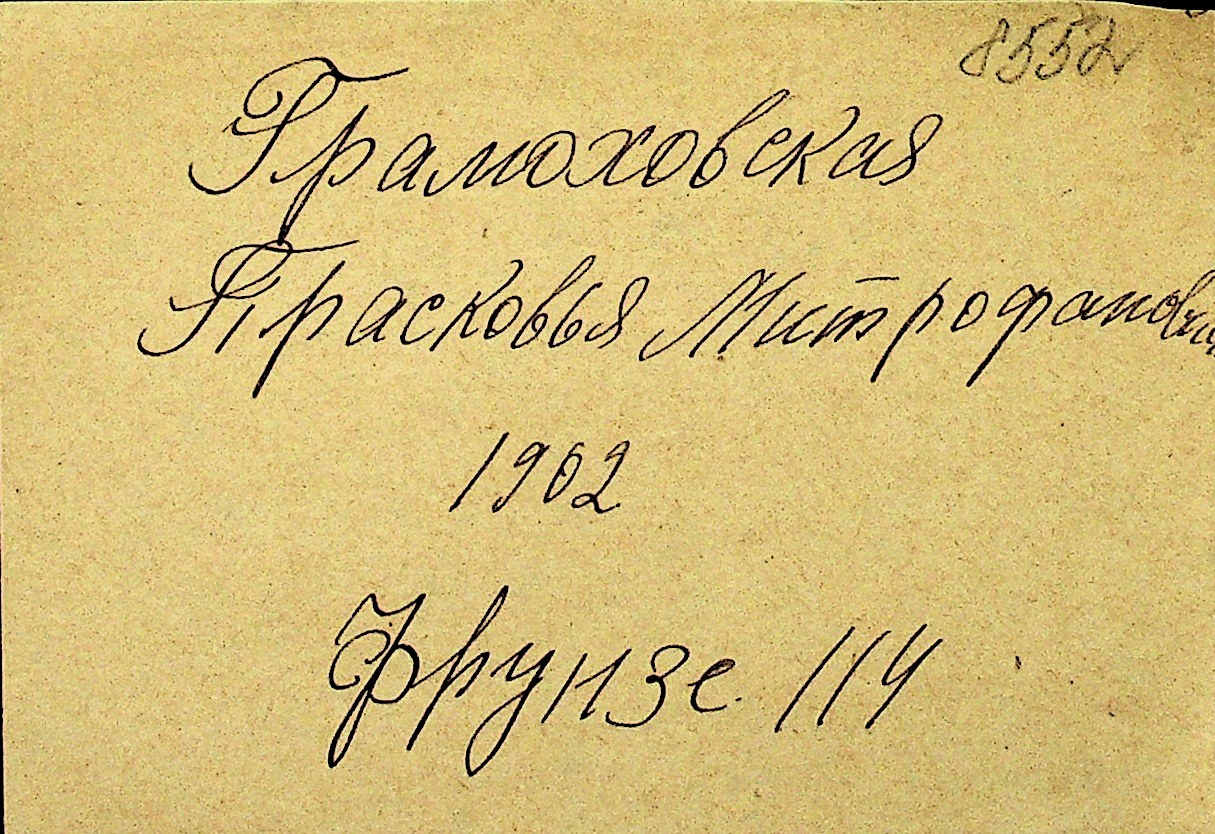 8552
Грамоховская
Прасковья Митрофановна
1902
Фрунзе 114